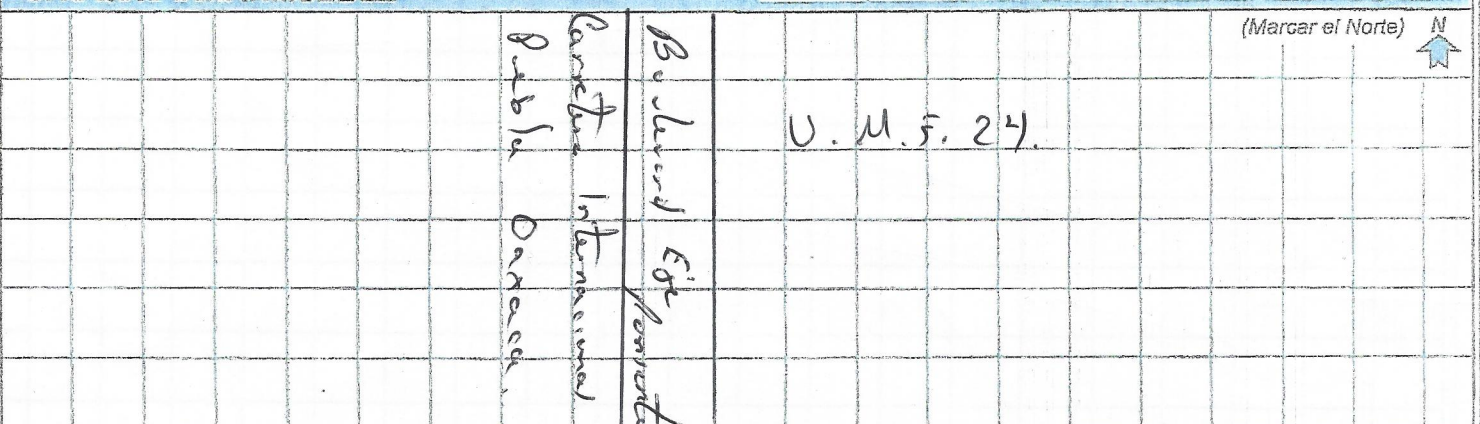 (Marcar el Norte) N
U. M. F. 24.
Boulevard Eje Poniente
Carretera Internacional
Puebla Oaxaca.